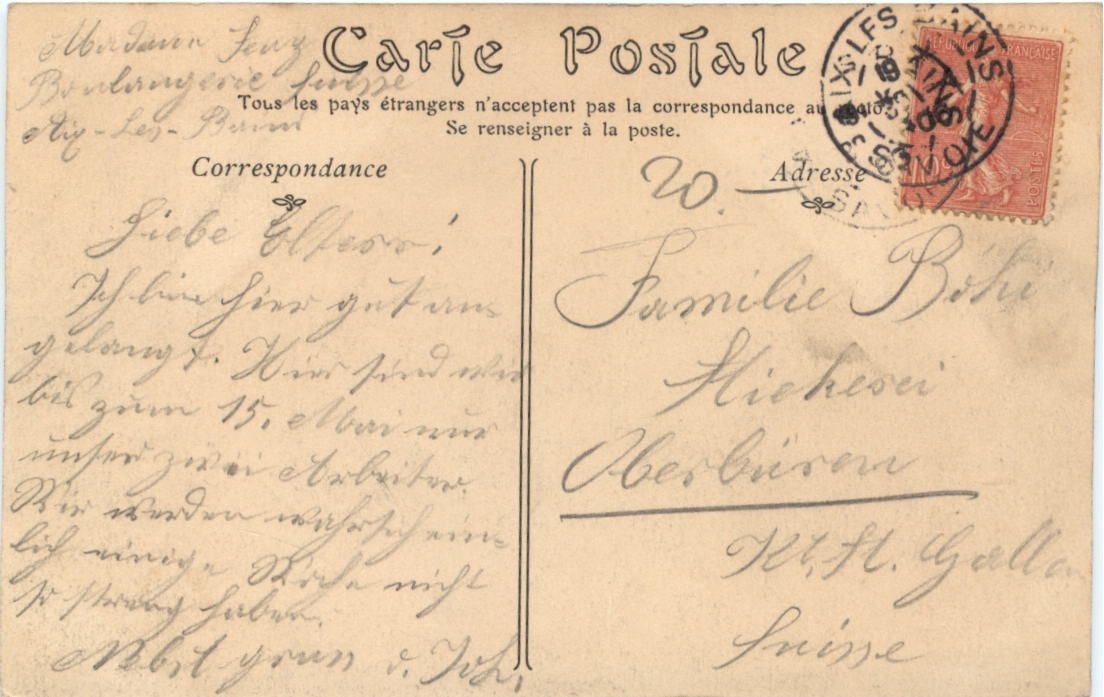 Madame
Boulangerie Suisse
Aix-Les-Bains
Carte Postale
Tous les pays étrangers n'acceptent pas la correspondance au recto
Se renseigner à la poste.
Correspondance
Liebe Eltern!
Ich bin hier gut an-
gelangt. Hier sind wir
bis zum 15. Mai nur
unser zwei Arbeiter.
Wir werden wahrschein-
lich einige Woche nicht
so streng haben.
Nebst gruss d. Joh.
Adresse
20.
Familie
Stickerei
Oberbüren
Kt. St. Gallen
Suisse
AIX-LES-BAINS
SAVOIE
REPUBLIQUE FRANÇAISE
POSTES
10